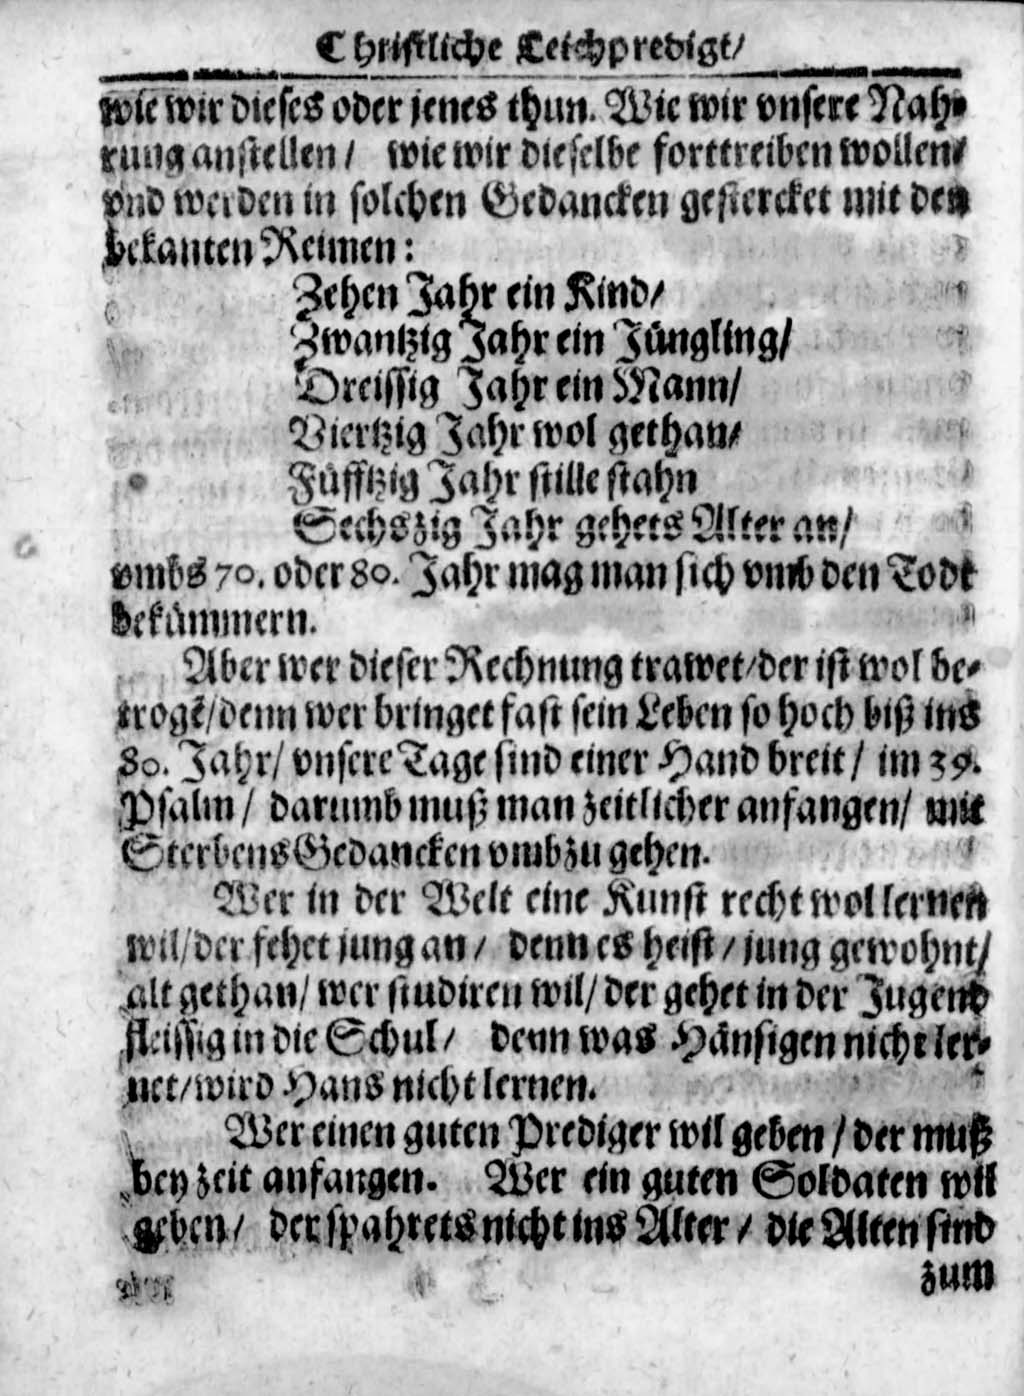 Christliche Leichpredigt/
wie wir dieses oder jenes thun. Wie wir vnsere Nah-
rung anstellen/ wie wir dieselbe forttreiben wollen/
vnd werden in solchen Gedancken gestercket mit den
bekanten Reimen:
Zehen Jahr ein Kind/
Zwantzig Jahr ein Jüngling/
Dreissig Jahr ein Mann/
Viertzig Jahr wol gethan/
Füfftzig Jahr stille stahn
Sechszig Jahr gehets Alter an/
vmbs 70. oder 80. Jahr mag man sich vmb den Todt
bekümmern.
Aber wer dieser Rechnung trawet/der ist wol be-
trogē/denn wer bringet fast sein Leben so hoch biß ins
80. Jahr/ vnsere Tage sind einer Hand breit/ im 39.
Psalm/ darumb muß man zeitlicher anfangen/ mit
Sterbens Gedancken vmbzugehen.
Wer in der Welt eine Kunst recht wol lernen
wil/der fehet jung an/ denn es heist/jung gewohnt/
alt gethan/ wer studiren wil/ der gehet in der Jugend
fleissig in die Schul/ denn was Hänsigen nicht ler-
net/wird Hans nicht lernen.
Wer einen guten Prediger wil geben/der muß
bey zeit anfangen. Wer ein guten Soldaten wil
geben/ der spahrets nicht ins Alter/ die Alten sind
zum